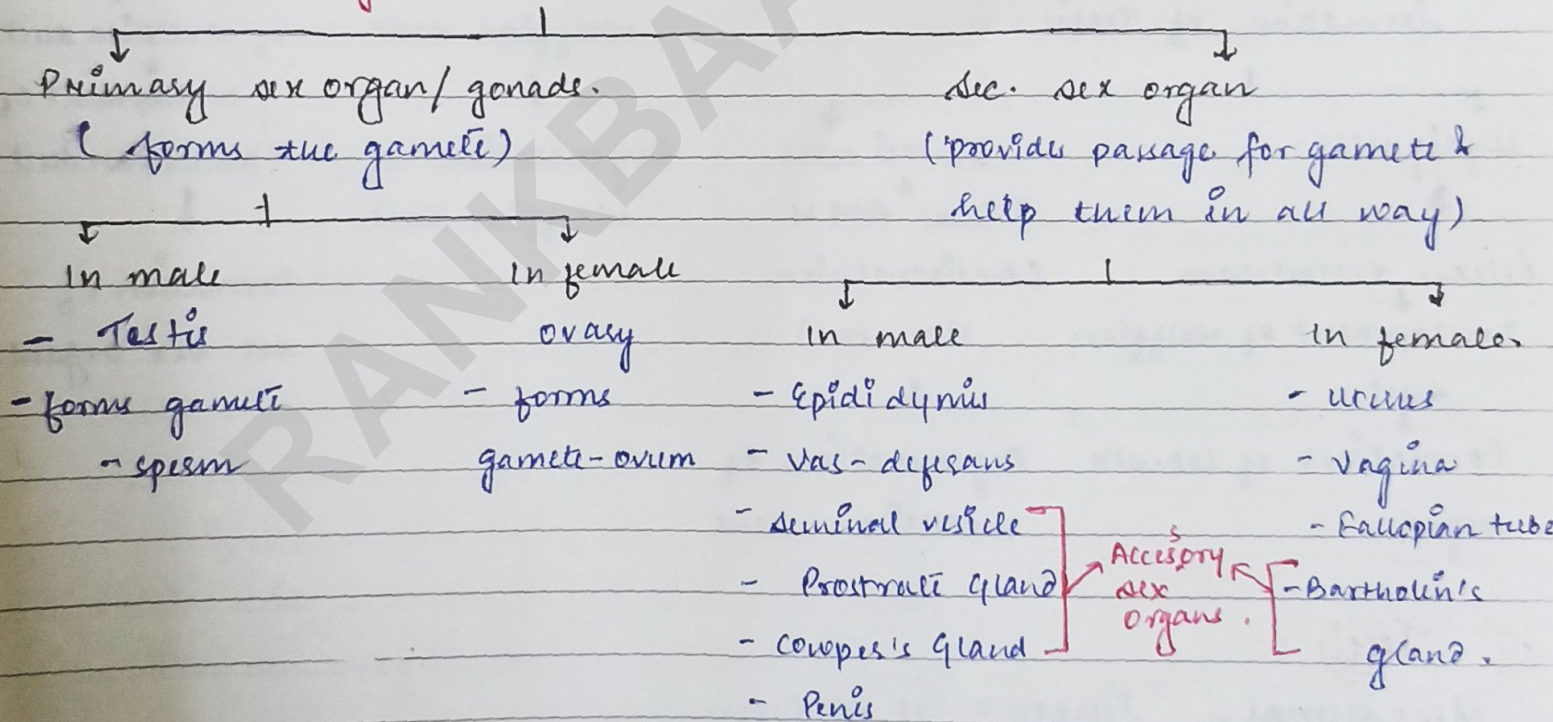 Primary sex organ/ gonads.
( forms the gamete)
In male
- Testis
- forms gamete
- sperm
In female
ovary
- forms
gamete-ovum
Sec. sex organ
(provides passage for gamete &
help them in all way)
In male
- Epididymis
- Vas-deferans
- seminal vesicle
- Prostrate Gland
- Cowper's Gland
- Penis
Accessory
sex
organs.
In female.
- Uterus
- Vagina
- Fallopian tube
- Bartholin's
gland.
RANKBAA